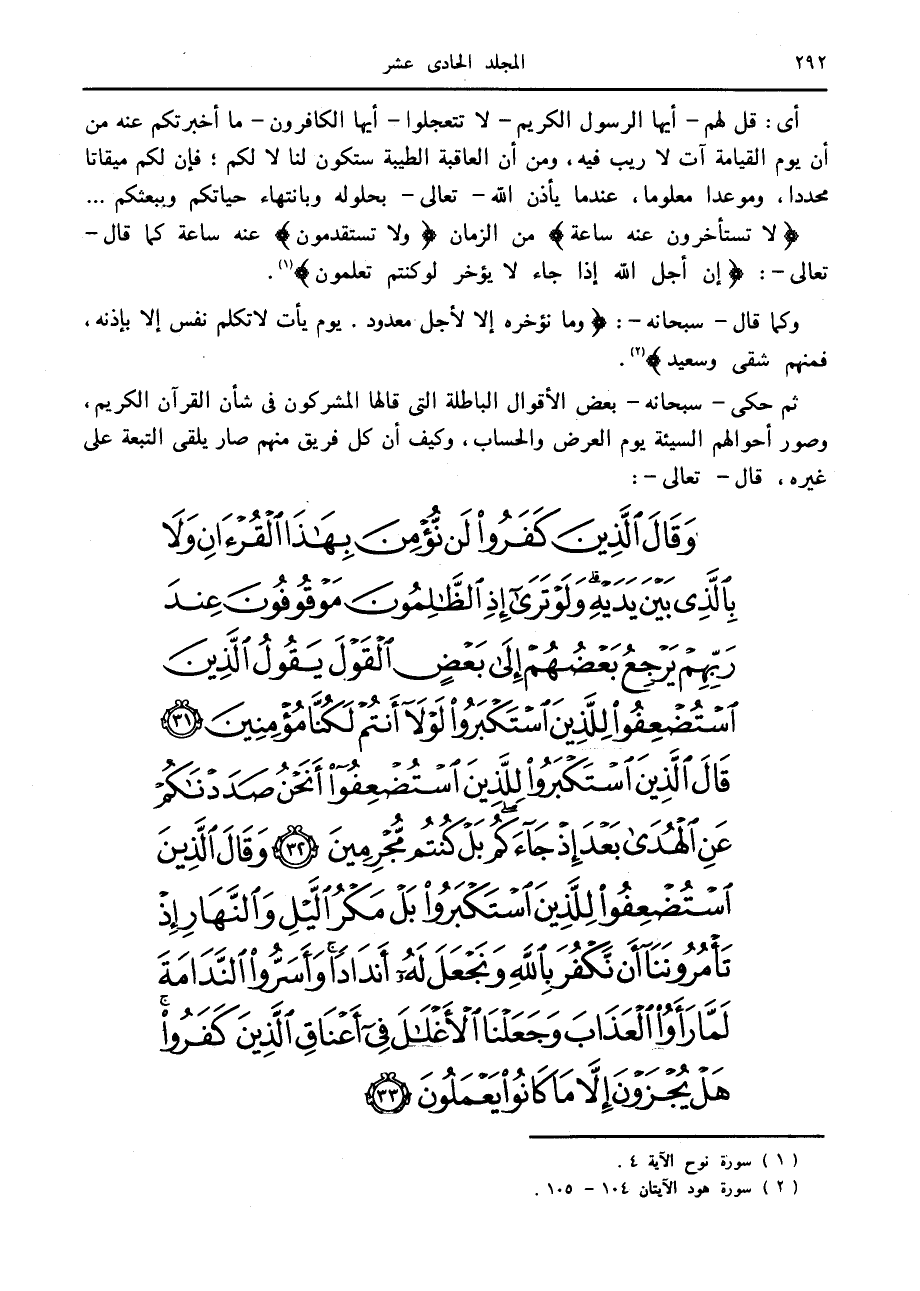 ٢٩٢ المجلد الحادى عشر
أى : قل لهم – أيها الرسول الكريم – لا تتعجلوا – أيها الكافرون – ما أخبرتكم عنه من
أن يوم القيامة آت لا ريب فيه ، ومن أن العاقبة الطيبة ستكون لنا لا لكم ؛ فإن لكم ميقاتا
محددا ، وموعدا معلوما ، عندما يأذن الله – تعالى – بحلوله وبانتهاء حياتكم وببعثكم ...
﴿ لا تستأخرون عنه ساعة ﴾ من الزمان ﴿ ولا تستقدمون ﴾ عنه ساعة كما قال –
تعالى – : ﴿ إن أجل الله إذا جاء لا يؤخر لوكنتم تعلمون ﴾(١) .
وكما قال – سبحانه – : ﴿ وما نؤخره إلا لأجل معدود . يوم يأت لاتكلم نفس إلا بإذنه ،
فمنهم شقى وسعيد ﴾(٢) .
ثم حكى – سبحانه – بعض الأقوال الباطلة التى قالها المشركون فى شأن القرآن الكريم ،
وصور أحوالهم السيئة يوم العرض والحساب ، وكيف أن كل فريق منهم صار يلقى التبعة على
غيره ، قال – تعالى – :
وَقَالَ ٱلَّذِينَ كَفَرُوا۟ لَن نُّؤْمِنَ بِهَـٰذَا ٱلْقُرْءَانِ وَلَا
بِٱلَّذِى بَيْنَ يَدَيْهِ ۗ وَلَوْ تَرَىٰٓ إِذِ ٱلظَّـٰلِمُونَ مَوْقُوفُونَ عِندَ
رَبِّهِمْ يَرْجِعُ بَعْضُهُمْ إِلَىٰ بَعْضٍ ٱلْقَوْلَ يَقُولُ ٱلَّذِينَ
ٱسْتُضْعِفُوا۟ لِلَّذِينَ ٱسْتَكْبَرُوا۟ لَوْلَآ أَنتُمْ لَكُنَّا مُؤْمِنِينَ ٣١
قَالَ ٱلَّذِينَ ٱسْتَكْبَرُوا۟ لِلَّذِينَ ٱسْتُضْعِفُوٓا۟ أَنَحْنُ صَدَدْنَـٰكُمْ
عَنِ ٱلْهُدَىٰ بَعْدَ إِذْ جَآءَكُم ۖ بَلْ كُنتُم مُّجْرِمِينَ ٣٢ وَقَالَ ٱلَّذِينَ
ٱسْتُضْعِفُوا۟ لِلَّذِينَ ٱسْتَكْبَرُوا۟ بَلْ مَكْرُ ٱلَّيْلِ وَٱلنَّهَارِ إِذْ
تَأْمُرُونَنَآ أَن نَّكْفُرَ بِٱللَّهِ وَنَجْعَلَ لَهُۥٓ أَندَادًا ۚ وَأَسَرُّوا۟ ٱلنَّدَامَةَ
لَمَّا رَأَوُا۟ ٱلْعَذَابَ وَجَعَلْنَا ٱلْأَغْلَـٰلَ فِىٓ أَعْنَاقِ ٱلَّذِينَ كَفَرُوا۟ ۚ
هَلْ يُجْزَوْنَ إِلَّا مَا كَانُوا۟ يَعْمَلُونَ ٣٣
( ١ ) سورة نوح الآية ٤ .
( ٢ ) سورة هود الآيتان ١٠٤ – ١٠٥ .